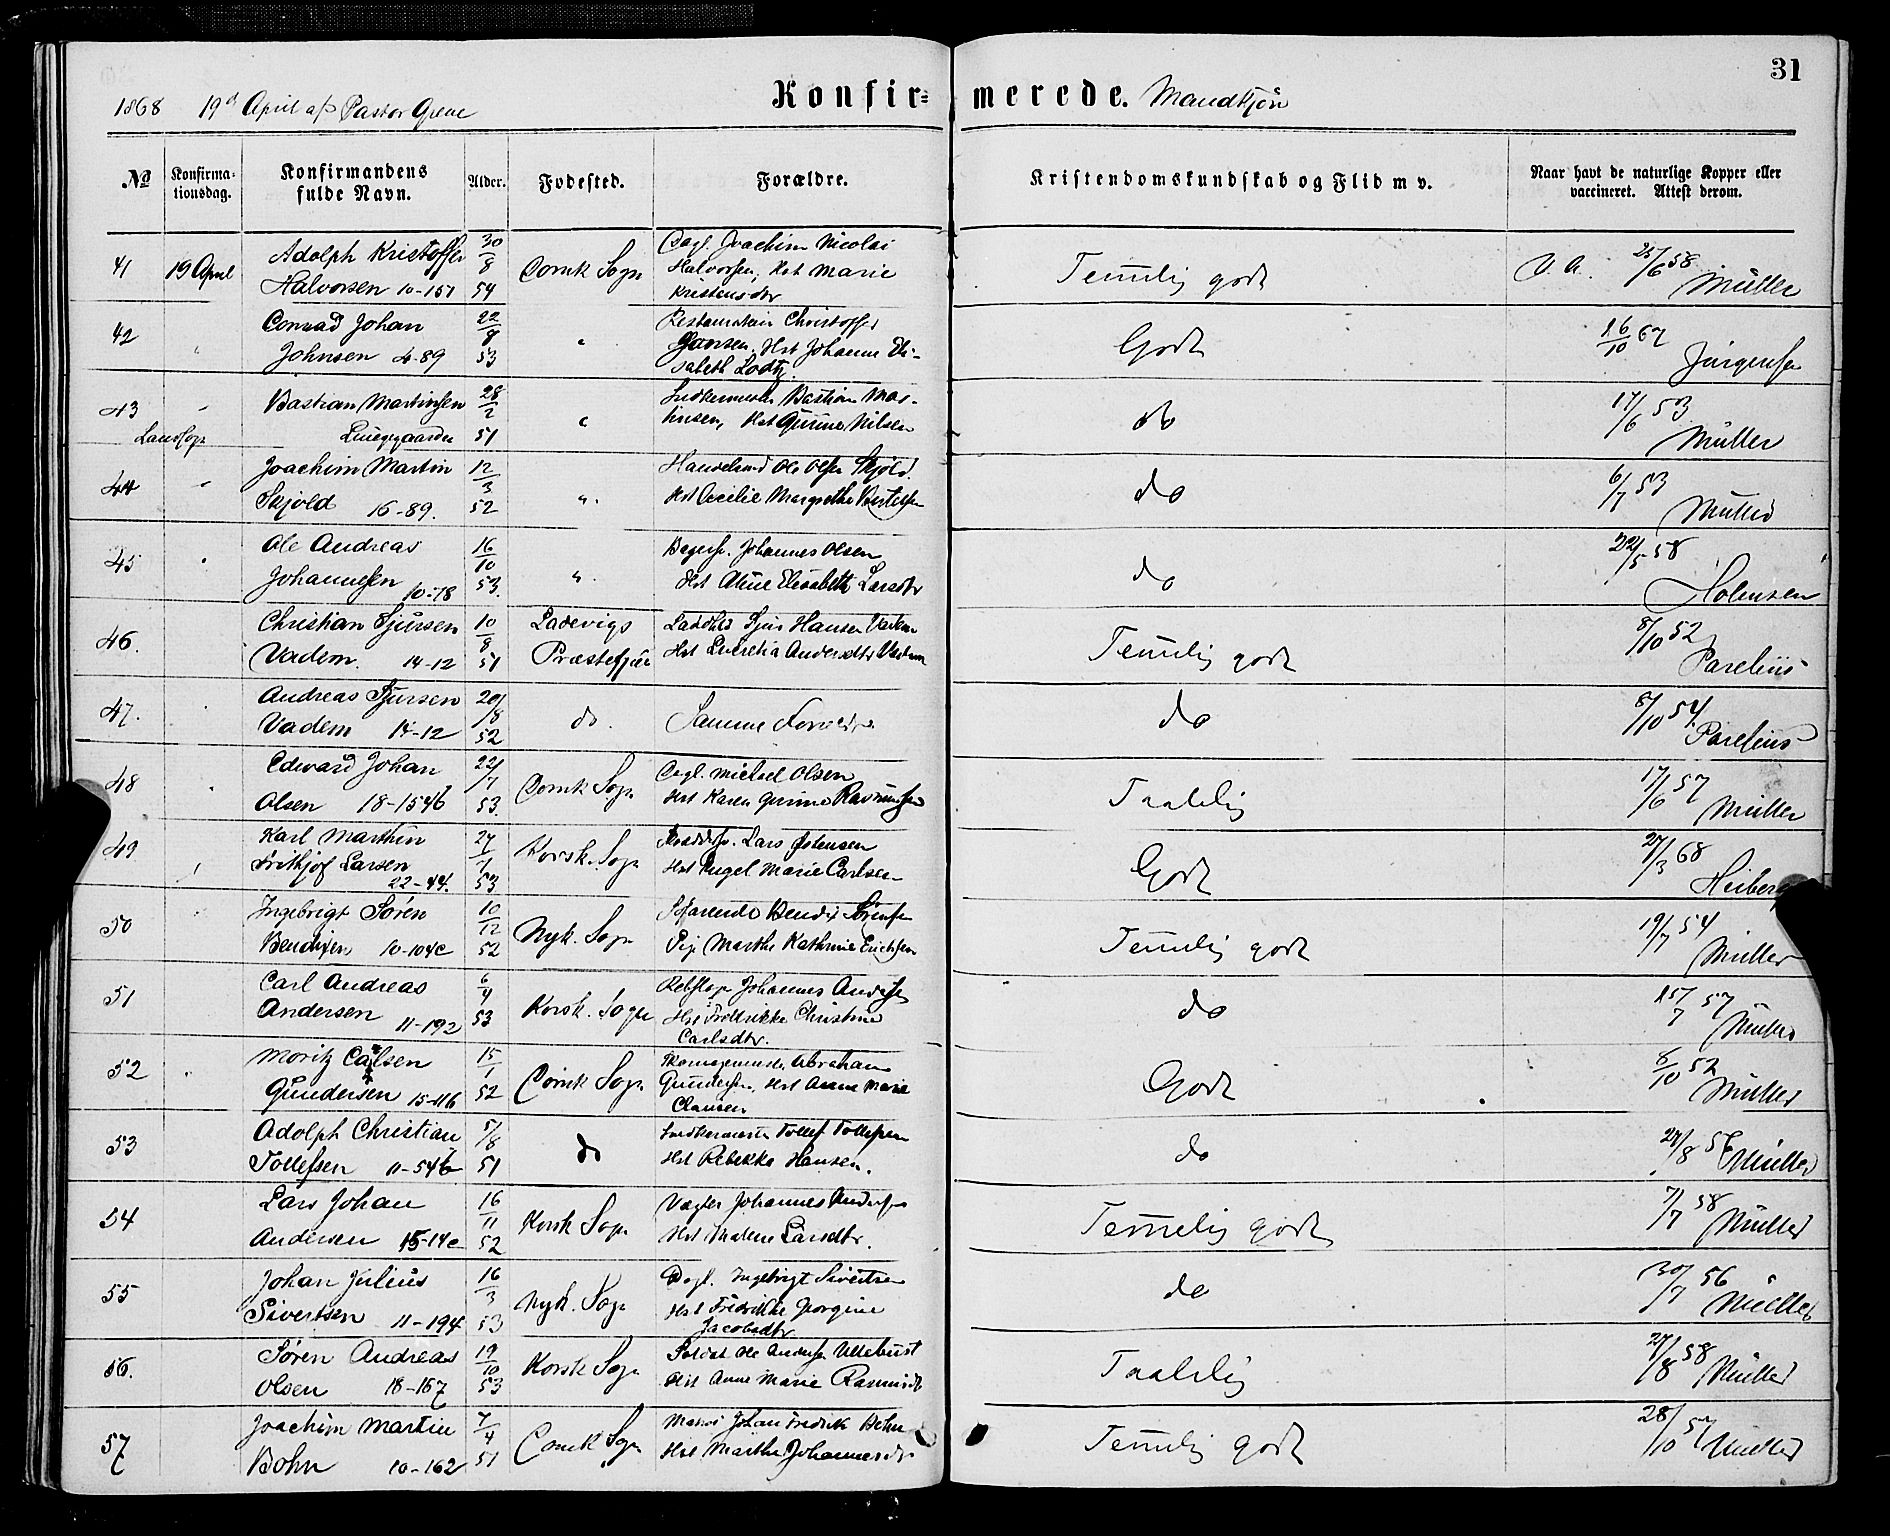 31
1868 19d April af Pastor Grene
Konfir= merede. Mandkjön
No
Konfirma=
tionsdag.
Konfirmandens
fulde Navn.
Alder.
Fødested.
Forældre.
Kristendomskundskab og Flid m v.
Naar havt de naturlige Kopper eller
vaccineret. Attest derom.
41 19 April Adolph Kristoffer 30/8 54 Domk Sogn
Halvorsen 10-151
Joachim Nicolai
Halvorsen, Hst Marie
Kristensdtr
Temlig godt
V. A. 25/6 58 Müller
42 Conrad Johan 22/9 53
Johnsen 4-89
Christoffer
Jansen. Hst Johanne Eli-
sabeth Lodtz
Godt
16/10 67 Jürgensen
43 Bastian Martinsen 28/2 51
Bastian Mar-
tinsen, Hst Gurine Nilsen
do
17/6 53 Müller
44 Joachim Martin 12/3 52
Skjold 16-89.
Ole Olsen Skjold.
Hst Cecilie Margrethe Bertelsen
do
6/7 53 Müller
45 Ole Andreas 16/10 53.
Johannesen 10-18
Johannes Olsen
Hst Aline Elisabeth Larsdtr
do
22/5 58
46. Christian Sjursen 10/8 51 Ladevigs
Vadem. 14-12 Præstegjæld
Sjur Hansen Vadem
Hst Lucretia Andersdtr Vadem
Temlig godt
8/10 52 Parelius
47. Andreas Sjursen 20/8 52 do.
Vadem 14-12
Samme Forældre
do
8/10 54 Parelius
48 Edward Johan 22/7 53. Domk Sogn
Olsen 18-154b
Michael Olsen
Hst Karen Gurine Rasmusen
Taalelig
17/6 57 Müller
49 Karl Marthin 27/7 53 Korsk. Sogn
Frithjof Larsen
22-44.
Lars Østensen
Hst Engel Marie Carlsen
Godt
27/3 68 Heiberg
50 Ingebrigt Sören 10/12 52 Nyk. Sogn
Bendixen 10-104c
Søfarende Bendix Sörensen
Pige Marthe Kathrine Erichsen
Temlig godt
19/7 54 Müller
51 Carl Andreas 6/4 53 Korsk. Sogn
Andersen 11-192
Johannes Andersen
Hst Fredrikke Christine
Carlsdtr.
do
15/7 57 Müller
52 Moritz Carlsen 15/1 52 Domk Sogn
Gundersen 15-116
Abraham
Gundersen. Hst Anne Marie
Clausen
Godt
8/10 52 Müller
53 Adolph Christian 5/8 51 do
Tollefsen 11-54b
Tollef Tollefsen
Hst Rebekka Hansen.
do
Müller
54 Lars Johan 16/11 52 Korsk Sogn
Andersen 15-14c
Vægter Johannes Andersen
Hst Malene Larsdtr.
Temmelig godt
7/7 58 Müller
55 Johan Julius 16/3 53 Nyk. Sogn
Sivertsen 11-194
Dagl. Ingebrigt Sivertsen
Hst Fredrikke Georgine
Jacobsdtr
do
30/7 56 Müller
56. Sören Andreas 19/10 53 Korsk Sogn
Olsen 18-167
Soldat Ole Andersen Ullebust
Hst Anne Marie Rasmusdtr
Taalelig
27/8 58 Müller
57 Joachim Martin 7/4 51 Domk Sogn
Bohn 10-162
Johan Fredrik Bohn
Hst Marthe Johannesdtr
Temlig godt
28/10 Müller